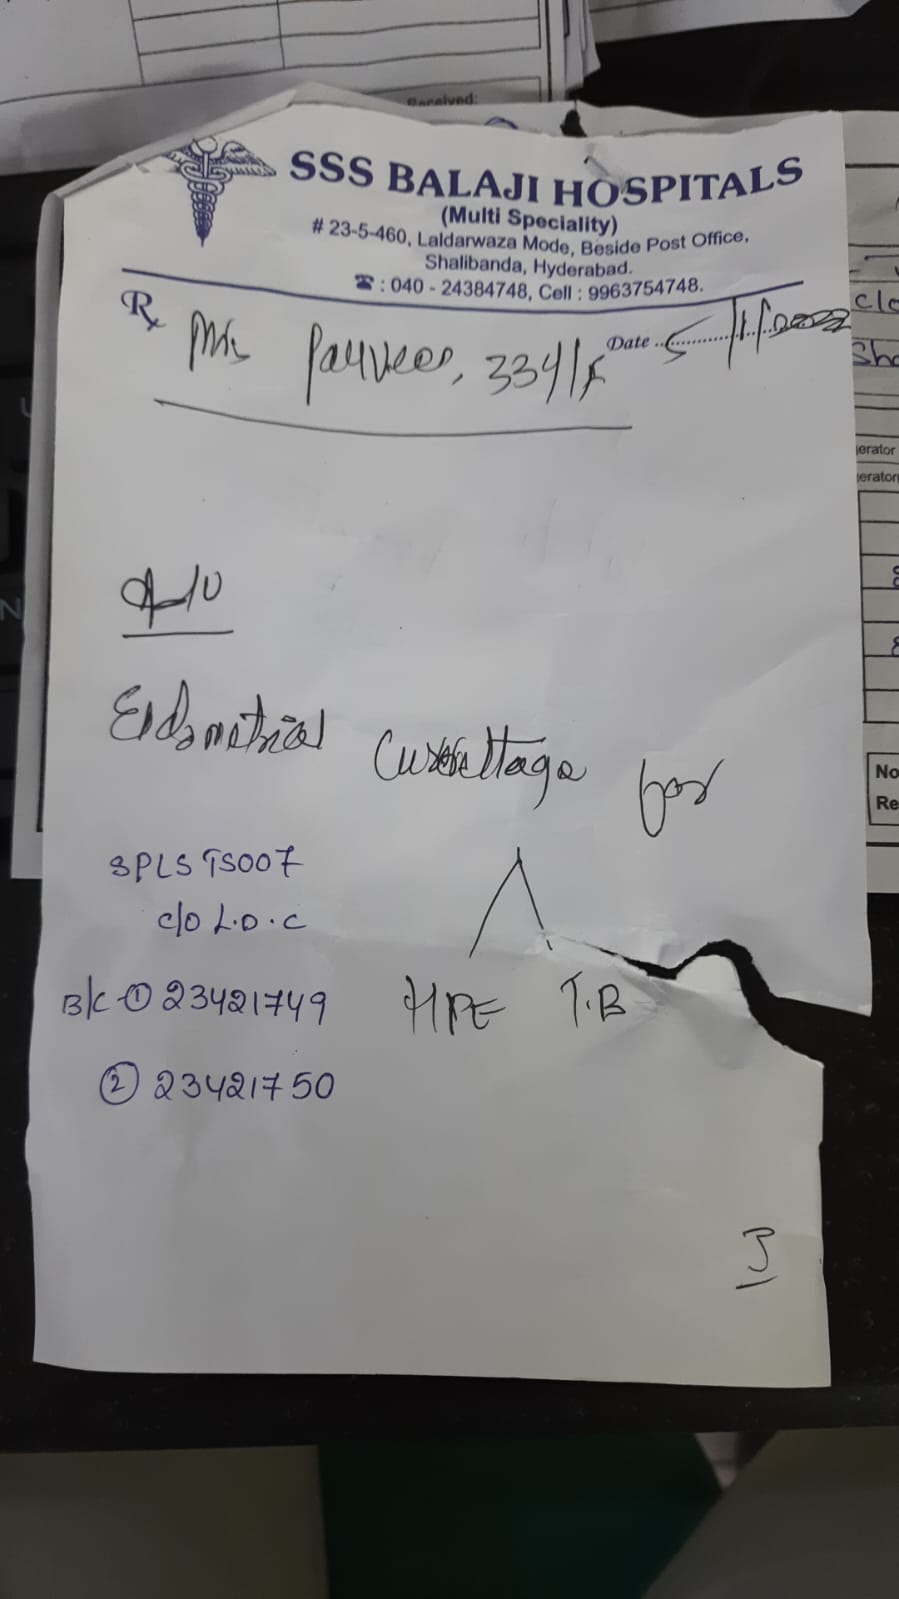 Received:
SSS BALAJI HOSPITALS
(Multi Speciality)
# 23-5-460, Laldarwaza Mode, Beside Post Office,
Shalibanda, Hyderabad.
☎ : 040 - 24384748, Cell : 9963754748.
Rx
Date
Mrs Parveen, 33y/F
Endometrial Curettage for
SPLSTS007
C/O L.D.C
HPE T.B
B/C ① 23421749
② 23421750
erator
erator
No
Re